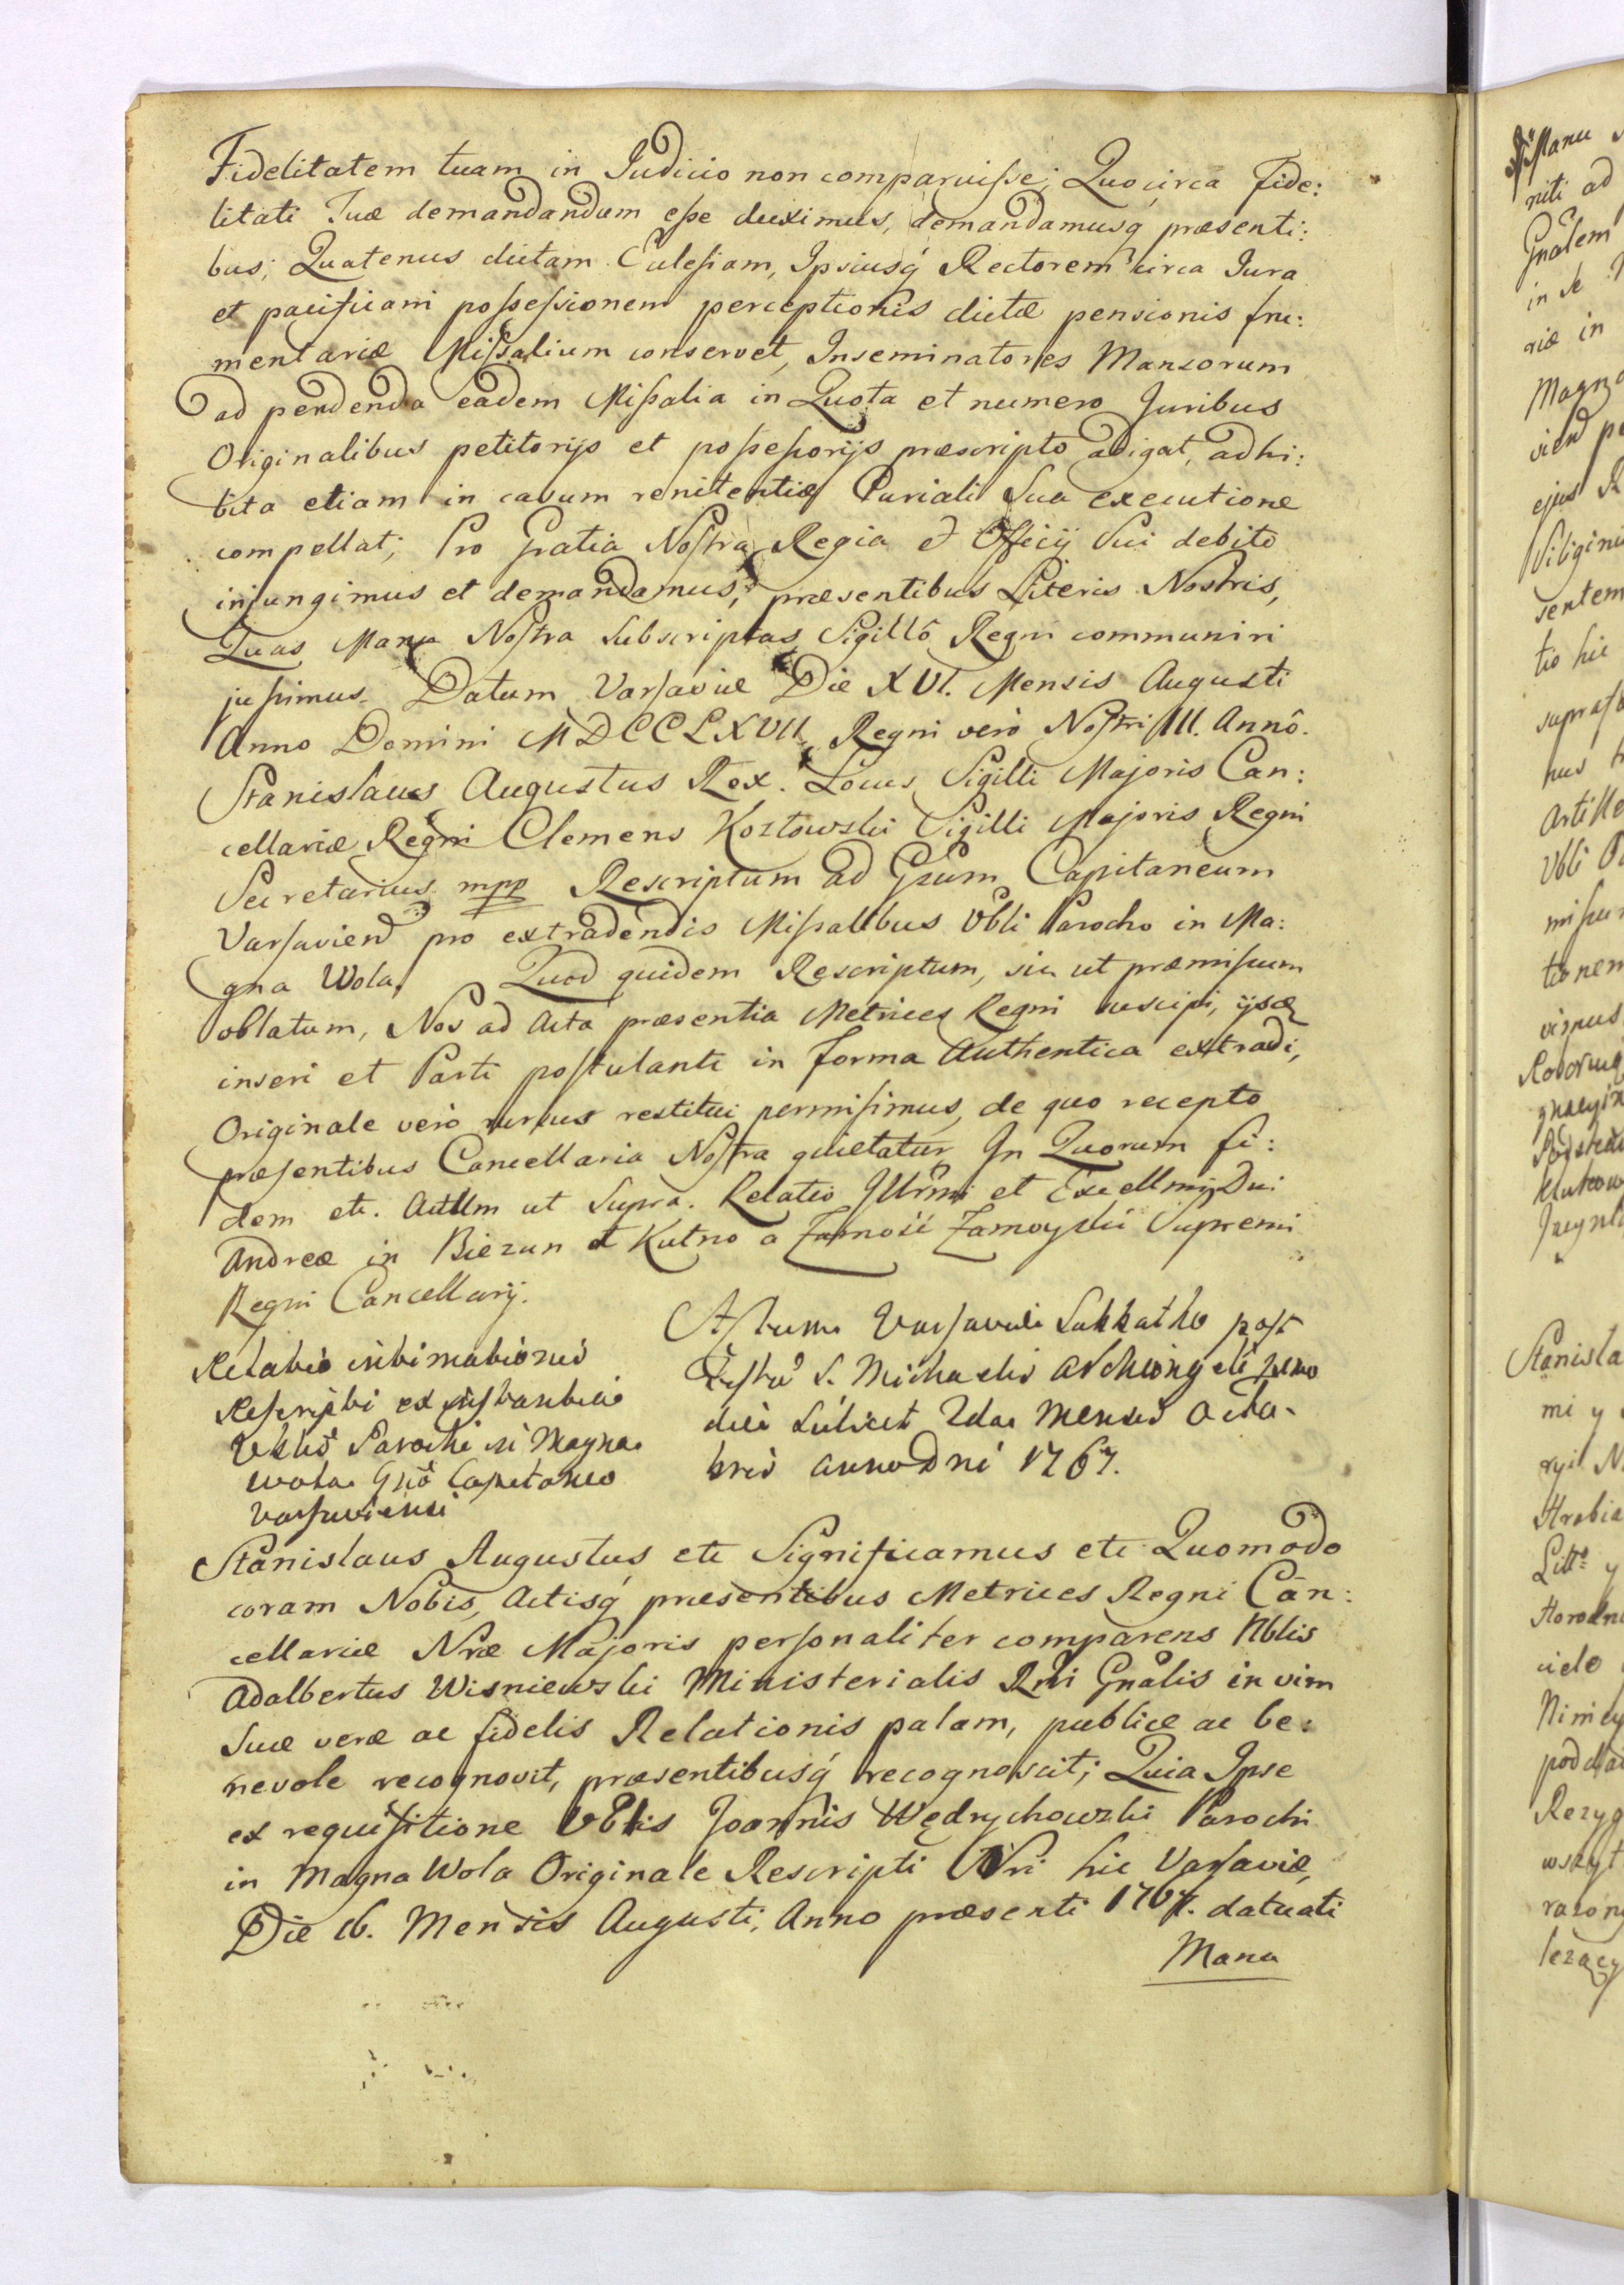 Fidelitatem tuam in Iudicio non comparuisse; Quocirca Fide:
litati Tuæ demandandum esse duximus, demandamusq́ præsenti:
bus; Quatenus dictam Ecclesiam, Ipsiusq́ Rectorem circa Iura
et pacificam possessionem perceptionis dictæ pensionis fru:
mentariæ Missalium conservet, Inseminatores Mansorum
ad pendenda eadem Missalia in Quota et numero Juribus
Originalibus petitorijs et possessorijs præscripto adigat, adhi:
bita etiam in casum renitentiæ Curiali Sua executione
compellat; Pro Gratia Nostra Regia et Officij Sui debito
injungimus et demandamus; præsentibus Literis Nostris,
Quas Manu Nostra Subscriptas Sigillô Regni communiri
jussimus. Datum Varsaviæ Die XVI. Mensis Augusti
Anno Domini MDCCLXVII Regni verò Nostri III. Annô.
Stanislaus Augustus Rex. Locus Sigilli Majoris Can:
cellariæ Regni Clemens Kozłowski Sigilli Majoris Regni
Secretarius mpp Rescriptum ad Gsum Capitaneum
Varsaviens pro extradendis Missalibus Vbli Parocho in Ma:
gna Wola. Quod quidem Rescriptum, sic ut præmissum
oblatum, Nos ad Acta præsentia Metrices Regni suscipi, ijsq
inseri et Parti postulanti in forma Authentica extradi,
Originale verò rursus restitui permisimus, de quo recepto
præsentibus Cancellaria Nostra quietatur In Quorum fi:
dem etc. Actum ut Supra. Relatio Illrmi et Excellmi Dni
Andreæ in Biezun et Kutno a Zamość Zamoyski Supremi
Regni Cancellarij.
Relatio intimationis
Rescripti ex instantia
Vblis Parochi in Magna
Wola Gño Capitaneo
Varsaviensi
Actum Varsaviæ Sabbatho post
Festū S. Michaelis Archangeli prmo
die Scilicet 2da Mensis Octo-
bris anno Dni 1767.
Stanislaus Augustus etc Significamus etc Quomodo
coram Nobis, Actisq́ præsentibus Metrices Regni Can:
cellariæ Nræ Majoris personaliter comparens Nblis
Adalbertus Wisniewski Ministerialis Rni Gnalis in vim
Suæ veræ ac fidelis Relationis palam, publice ac be:
nevole recognovit, præsentibusq́ recognoscit; Quia Ipse
ex requisitione Vblis Joannis Wędrychowski Parochi
in Magna Wola Originale Rescripti Nri hic Varsaviæ,
Die 16. Mensis Augusti, Anno præsenti 1767. datuati
Manu